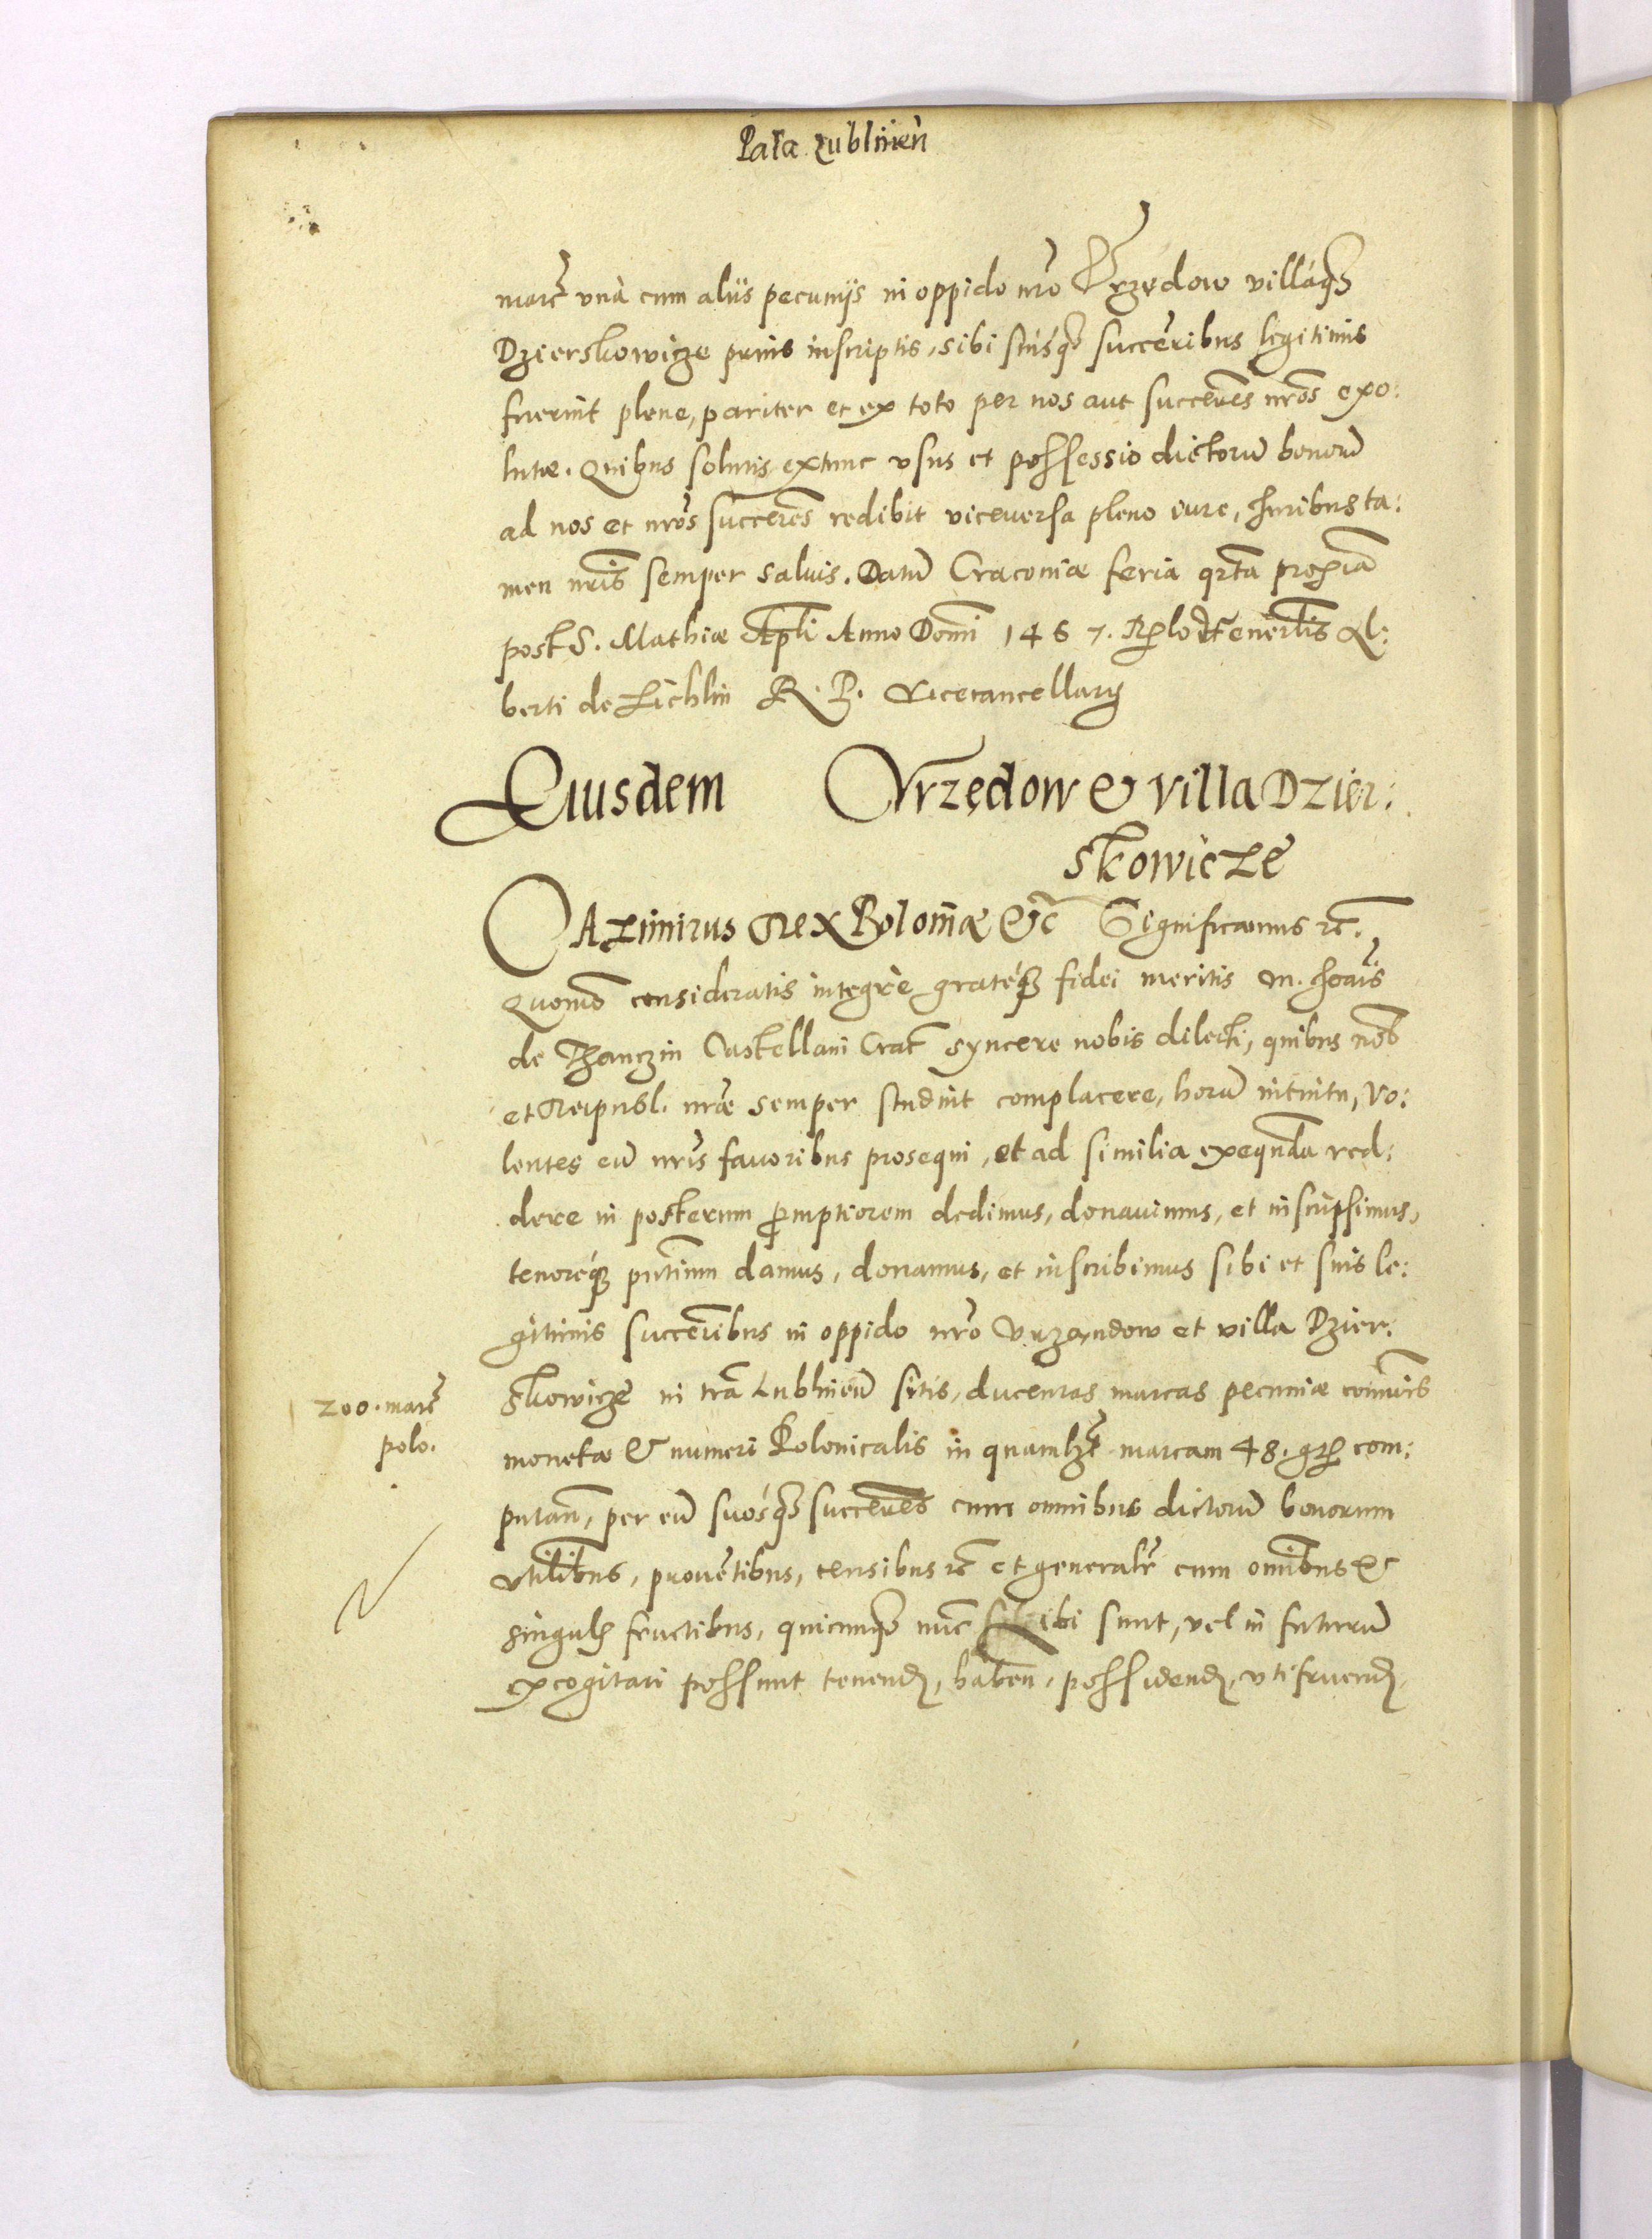 Pala Lublinen
marc̃ vnà cum aliis pecunijs in oppido nr̃o Vrzędow villáq3
Dzierskowicze prius inscriptis, sibi suisq3 succeribus legitimis
fuerint plene, pariter et ex toto per nos aut succeres nr̃os exo:
lutæ. Quibus solutis extunc vsus et possessio dictorũ bonorũ
ad nos et nr̃os succeres redibit viceuersa pleno iure, Juribus ta:
men nr̃is semper saluis. Datũ Cracouiæ feria qrta proxia
post S. Mathiæ Apli Anno Domi 1467. Rẽlo Venerlis Al:
berti de Zichlin R. P. Vicecancellarij
Eiusdem Vrzędow & villa Dzier:
skowicze
Cazimirus Rex Poloniæ &c̃ Significamus &c.
Quomo consideratis integrè gratéq3 fidei meritis M. Joañis
de Thanczin Castellani Crac̃ syncere nobis dilecti, quibus nob
et Reipubl. nr̃æ semper studuit complacere, horũ intuitu, Vo:
lentes eũ nr̃is fauoribus prosequi, et ad similia exequnda red:
dere in posterum promptiorem dedimus, donauimus, et inscripsimus,
tenoréq3 pntium damus, donamus, et inscribimus sibi et suis le:
gitimis succeribus in oppido nr̃o Vrzandow et villa Dzier:
skowicze in tr̃a Lublineñ sitis, ducentas marcas pecuniæ comunis
200. marc̃
polo.
monetæ & numeri Polonicalis in quamlz̃t marcam 48. gr̃ com:
putañ, per eũ suósq3 succeres cum omnibus dictorũ bonorum
vtilibus, prouetibus, censibus &c et generalr̃ cum omibus &
singulis fructibus, quicunq3 nũc ibi sunt, vel in futurũ
excogitari possunt tenend, haben, possidend, vtifruend,